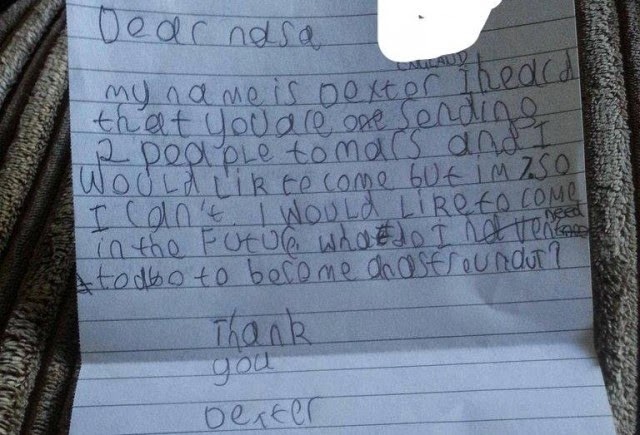 Dear nasa
ENGLAND
my name is Dexter I heard
that you are sending
2 poeple to mars and I
would lik to come but im 7 so
I can't. I would like to come
in the future. what do I need
to do to become an astrounaut?
Thank
you
Dexter